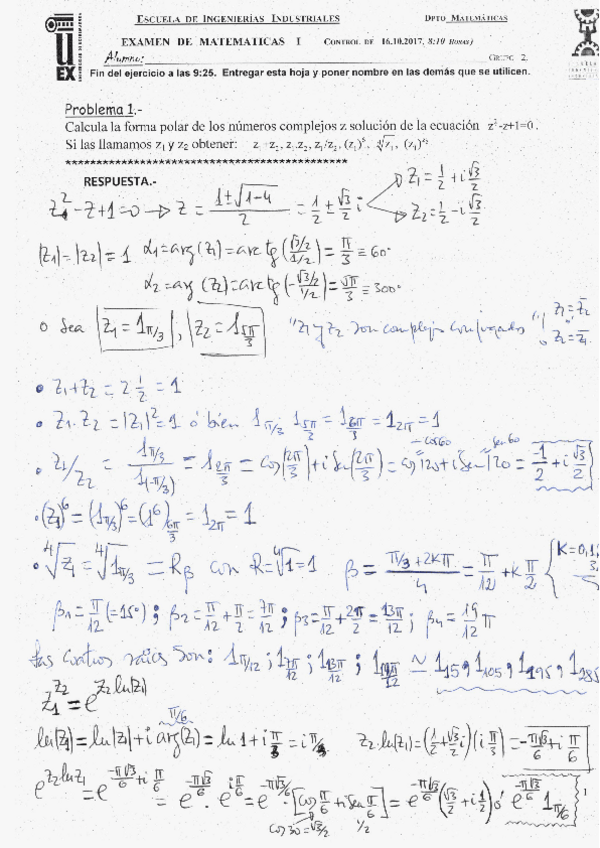 ESCUELA DE INGENIERÍAS INDUSTRIALES DPTO. MATEMÁTICAS
EXAMEN DE MATEMATICAS I CONTROL DE 16.10.2017, 8:10 HORAS)
Alumno: GRUPO 2.
UEX
Fin del ejercicio a las 9:25. Entregar esta hoja y poner nombre en las demás que se utilicen.
Problema 1.-
Calcula la forma polar de los números complejos z solución de la ecuación z²-z+1=0.
Si las llamamos z₁ y z₂ obtener: z₁+z₂, z₁.z₂, z₁/z₂, (z₁)⁶, ⁴√z₁, (z₁)^z₂
**********************************************
RESPUESTA.-
z²-z+1=0 → z = (1±√(1-4))/2 = 1/2 ± √3/2 i
z₁ = 1/2 + i √3/2
z₂ = 1/2 - i √3/2
|z₁| = |z₂| = 1 α₁ = arg(z₁) = arctg((√3/2)/(1/2)) = π/3 ≡ 60°
α₂ = arg(z₂) = arctg((-√3/2)/(1/2)) = 5π/3 ≡ 300°
o sea z₁ = 1_π/3 ; z₂ = 1_5π/3 "z₁ y z₂ son complejos conjugados" z₁ = z̄₂ z₂ = z̄₁
• z₁+z₂ = 2 1/2 = 1
• z₁·z₂ = |z₁|² = 1 ó bien 1_π/3 1_5π/3 = 1_6π/3 = 1_2π = 1
-cos60 sen60
• z₁/z₂ = 1_π/3 / 1_(-π/3) = 1_2π/3 = cos(2π/3) + i sen(2π/3) = cos120 + i sen120 = -1/2 + i √3/2
• (z₁)⁶ = (1_π/3)⁶ = (1⁶)_6π/3 = 1_2π = 1
• ⁴√z₁ = ⁴√1_π/3 = R_β con R = ⁴√1 = 1 β = (π/3 + 2kπ)/4 = π/12 + k π/2 { K = 0,1,
β₁ = π/12 (=15°) ; β₂ = π/12 + π/2 = 7π/12 ; β₃ = π/12 + 2π/2 = 13π/12 ; β₄ = 19/12 π
Las cuatro raíces son: 1_π/12 ; 1_7π/12 ; 1_13π/12 ; 1_19π/12 ~ 1_15, 1_105, 1_195, 1_285
z₁^z₂ = e^(z₂ ln(z₁))
π/6
ln(z₁) = ln|z₁| + i arg(z₁) = ln 1 + i π/3 = i π/3 z₂·ln(z₁) = (1/2 + √3/2 i)(i π/3) = -π√3/6 + i π/6
e^(z₂ ln z₁) = e^(-π√3/6 + i π/6) = e^(-π√3/6) · e^(iπ/6) = e^(-π√3/6) · [cos π/6 + i sen π/6] = e^(-π√3/6) (√3/2 + i 1/2) ó e^(-π√3/6) 1_π/6
cos30 = √3/2 1/2